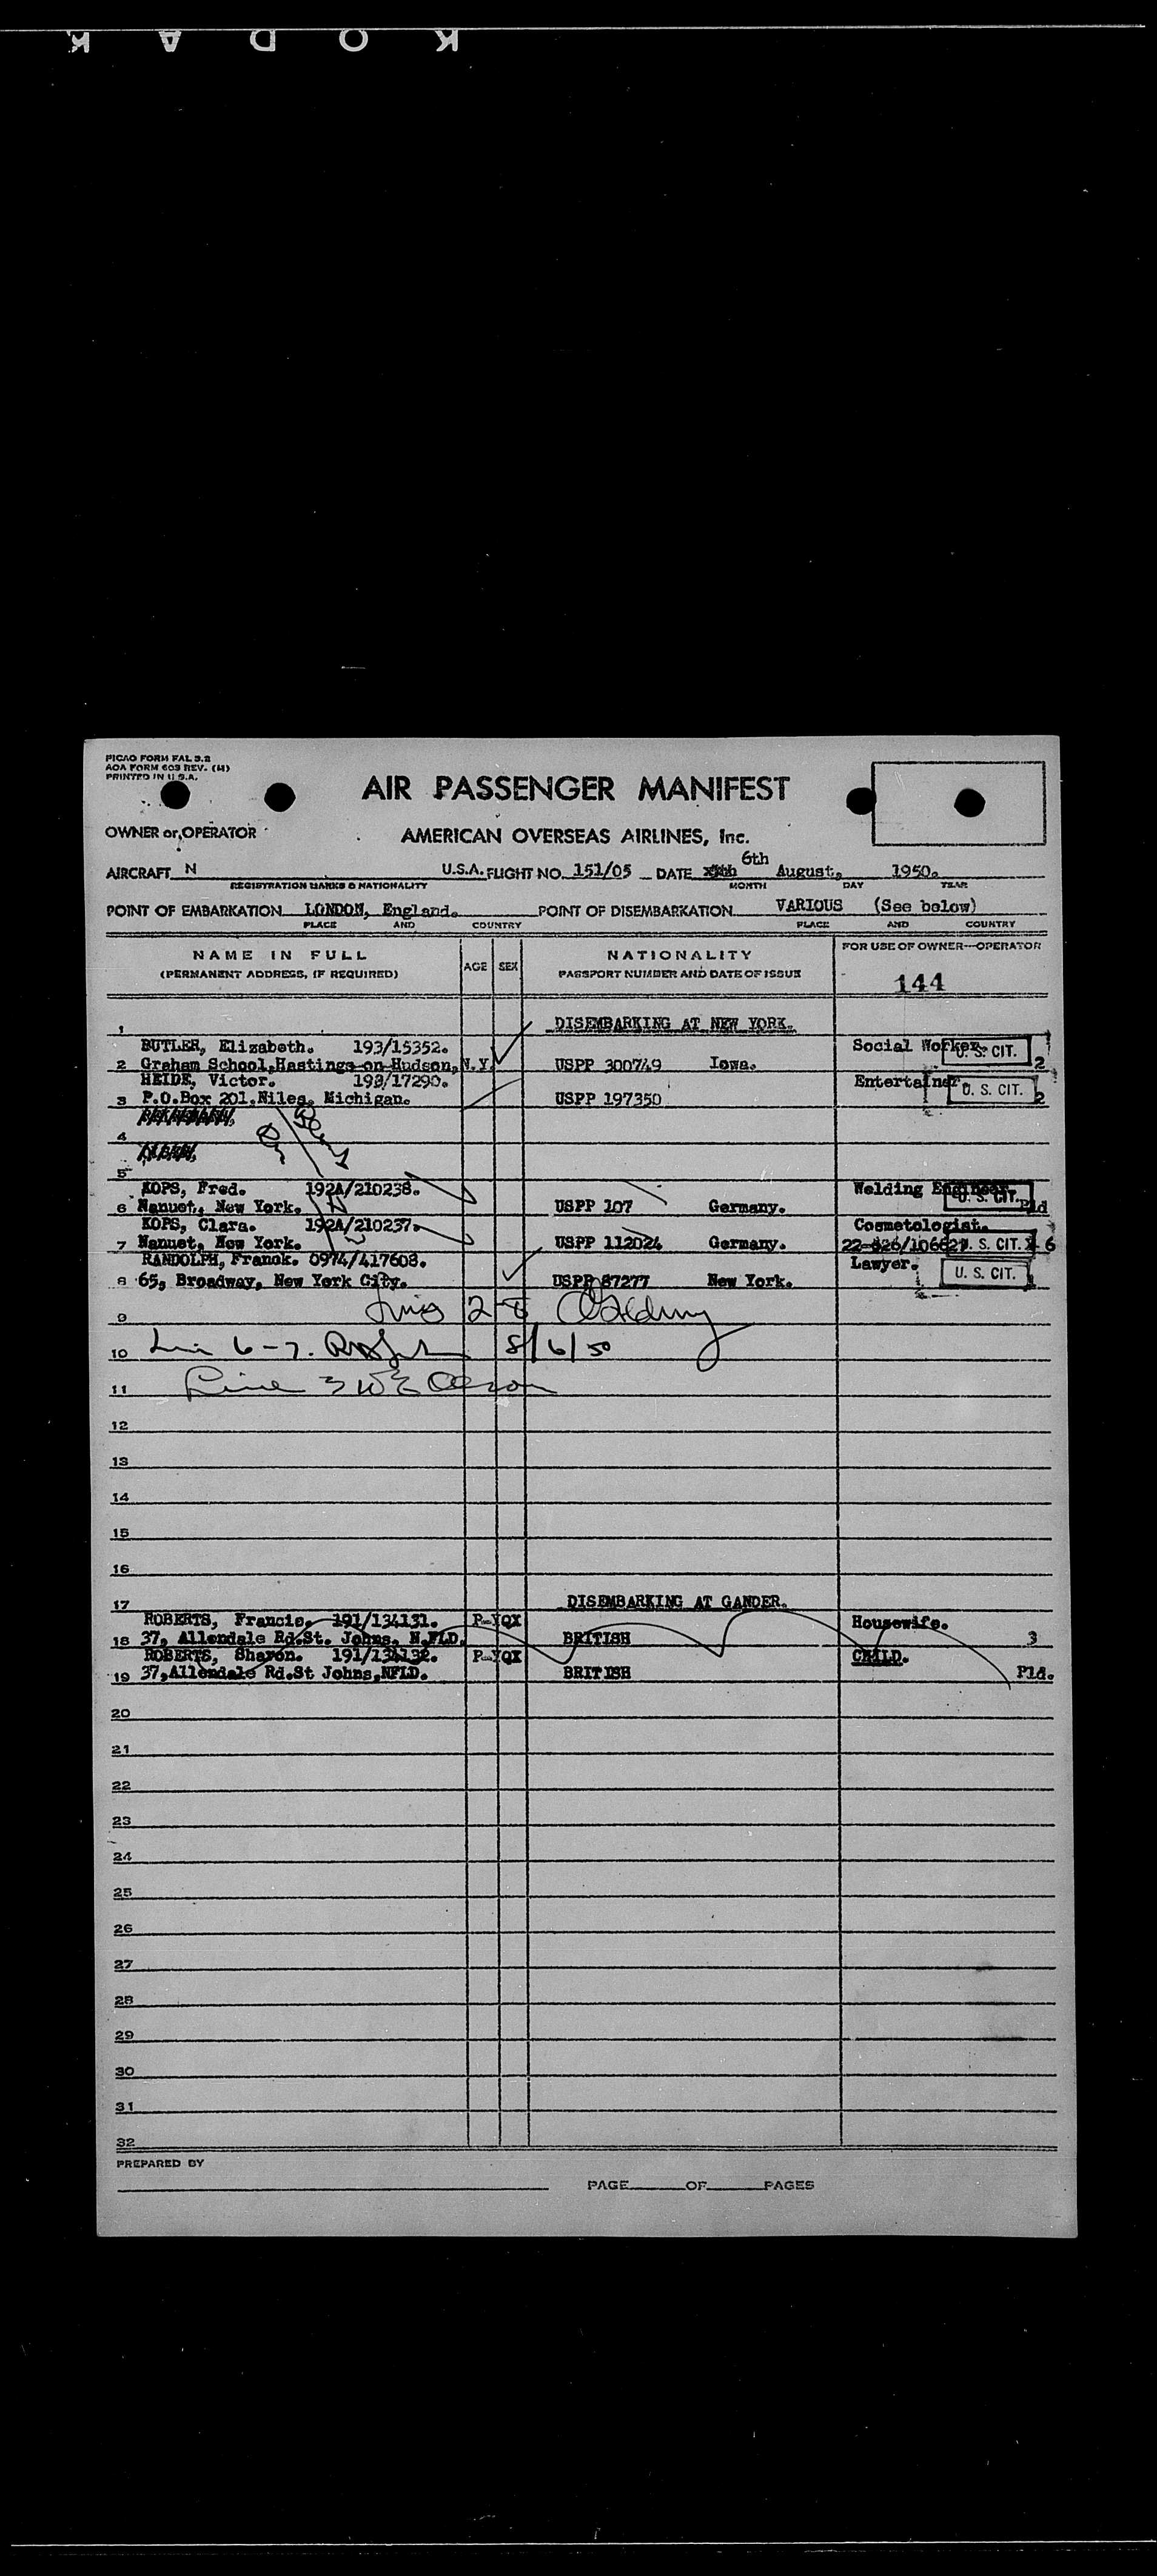 K O D A K
PICAO FORM FAL 3.2
AOA FORM 603 REV. (M)
PRINTED IN U.S.A.
AIR PASSENGER MANIFEST
OWNER or OPERATOR
AMERICAN OVERSEAS AIRLINES, Inc.
AIRCRAFT N U.S.A. FLIGHT NO. 151/05 DATE 6th August, 1950.
REGISTRATION MARKS & NATIONALITY MONTH DAY YEAR
POINT OF EMBARKATION LONDON, England. POINT OF DISEMBARKATION VARIOUS (See below)
PLACE AND COUNTRY PLACE AND COUNTRY
NAME IN FULL AGE SEX NATIONALITY FOR USE OF OWNER—OPERATOR
(PERMANENT ADDRESS, IF REQUIRED) PASSPORT NUMBER AND DATE OF ISSUE
144
1 DISEMBARKING AT NEW YORK.
BUTLER, Elizabeth. 193/15352. Social Worker. U. S. CIT.
2 Graham School,Hastings-on-Hudson, N.Y. USPP 300749 Iowa. 2
HEIDE, Victor. 193/17290. Entertainer. U. S. CIT.
3 P.O.Box 201,Niles, Michigan. USPP 197350 2
4
5
KOPS, Fred. 192A/210238. Welding Engineer. U. S. CIT.
6 Nanuet, New York. USPP 107 Germany. Pld
KOPS, Clara. 192A/210237. Cosmetologist.
7 Nanuet, New York. USPP 112024 Germany. U. S. CIT. 6
RANDOLPH, Franck. 0974/417608. Lawyer.
8 65, Broadway, New York City. USPP 87277 New York. U. S. CIT.
9
10 6-7. 8/6/50
11 Line 3
12
13
14
15
16
17 DISEMBARKING AT GANDER.
ROBERTS, Francis. 191/134131. P-YQX Housewife.
18 37, Allendale Rd.St. Johns, N.FLD. BRITISH 3
ROBERTS, Sharon. 191/134132. P-YQX CHILD.
19 37,Allendale Rd.St Johns,NFLD. BRITISH Pld.
20
21
22
23
24
25
26
27
28
29
30
31
32
PREPARED BY
PAGE OF PAGES